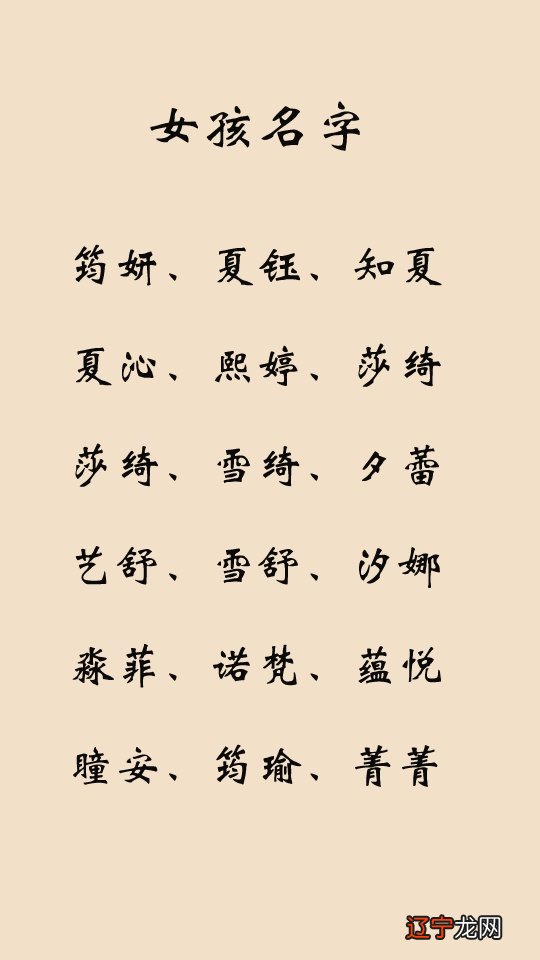 女孩名字
筠妍、夏钰、知夏
夏沁、熙婷、莎绮
莎绮、雪绮、夕蕾
艺舒、雪舒、汐娜
淼菲、诺梵、蕴悦
瞳安、筠瑜、菁菁
辽宁龙网